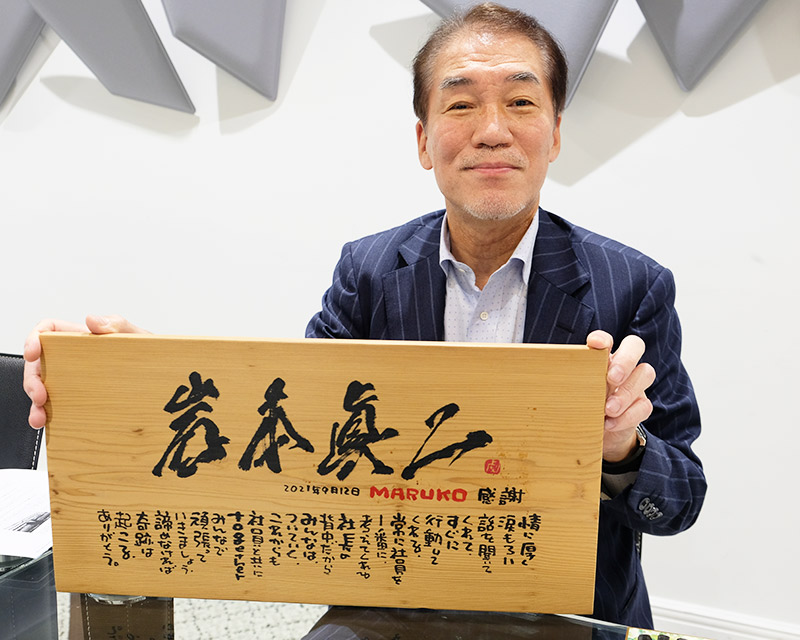 岩本眞二
2021年9月12日 MARUKO 感謝
情に厚く
涙もろい
話を聞いて
くれて、
すぐに
行動して
くれる。
常に社員を
一番に、
考えてくれる
社長の
背中だから
みんなは、
ついていく。
これからも
社員と共に
together
みんなで
頑張って
いきましょう。
諦めなければ
奇跡は
起こる。
ありがとう。